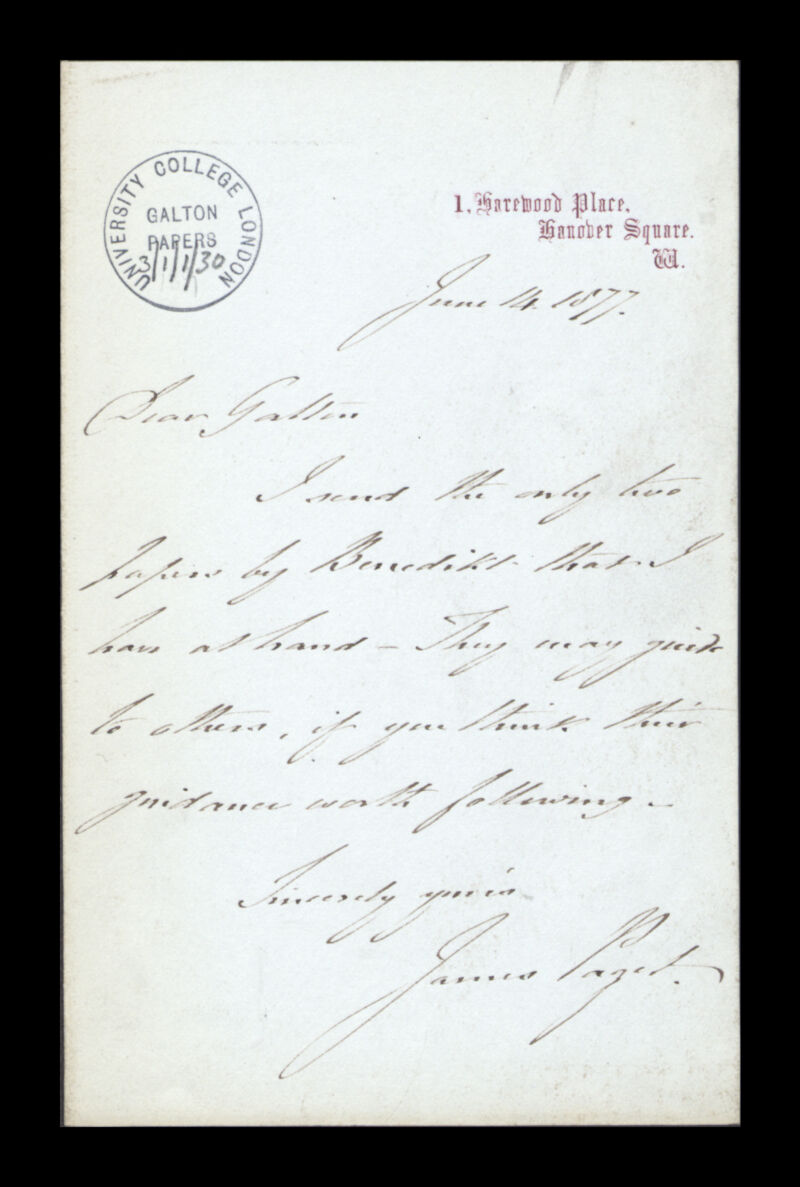 UNIVERSITY COLLEGE LONDON
GALTON
PAPERS
3/1/1/30
1, Harewood Place,
Hanover Square.
W.
June 14. 1877.
Dear Galton
I send the only two
papers by Benedikt that I
have at hand – They may guide
to others, if you think their
guidance worth following –
Sincerely yours
James Paget.